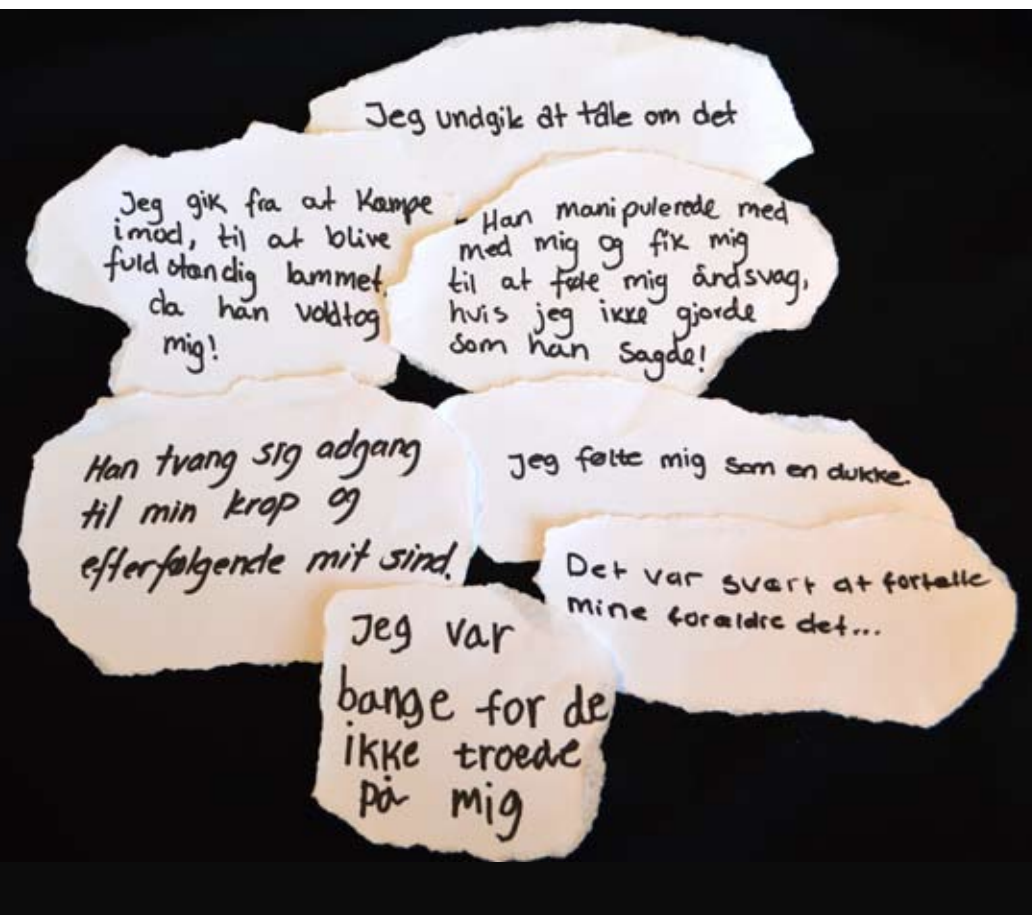 Jeg undgik at tale om det
Jeg gik fra at Kæmpe
imod, til at blive
fuldstændig lammet.
da han voldtog
mig!
Han manipulerede med
med mig og fik mig
til at føle mig åndsvag,
hvis jeg ikke gjorde
som han sagde!
Han tvang sig adgang
til min krop og
efterfølgende mit sind.
Jeg følte mig som en dukke.
Det var svært at fortælle
mine forældre det...
Jeg var
bange for de
ikke troede
på mig